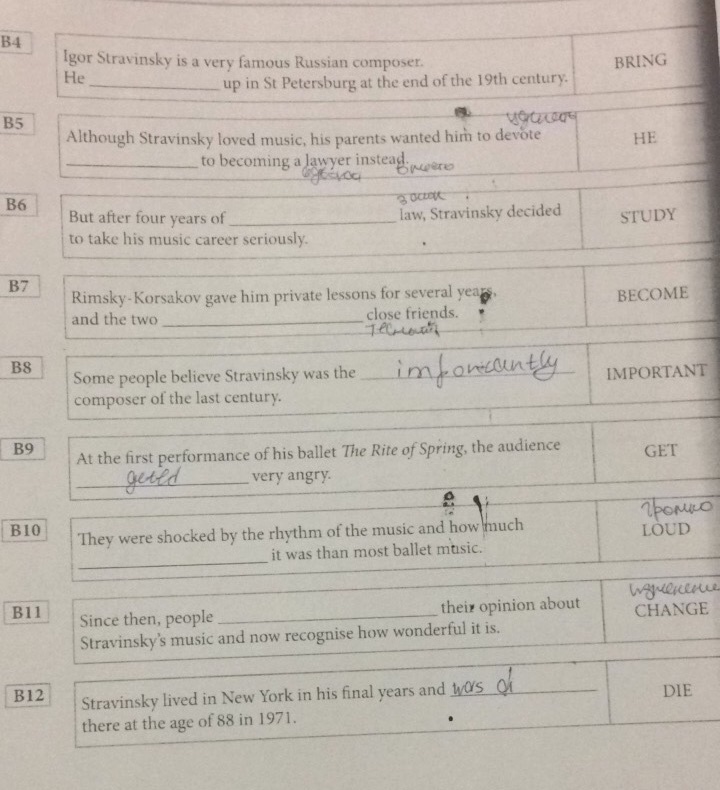 B4
Igor Stravinsky is a very famous Russian composer.
He ____________ up in St Petersburg at the end of the 19th century.
BRING
B5
Although Stravinsky loved music, his parents wanted him to devote
____________ to becoming a lawyer instead.
HE
B6
закон
But after four years of ____________ law, Stravinsky decided
to take his music career seriously.
STUDY
B7
Rimsky-Korsakov gave him private lessons for several years,
and the two ____________ close friends.
BECOME
B8
Some people believe Stravinsky was the importantly
composer of the last century.
IMPORTANT
B9
At the first performance of his ballet The Rite of Spring, the audience
____________ very angry.
GET
B10
They were shocked by the rhythm of the music and how much
____________ it was than most ballet music.
громко
LOUD
B11
Since then, people ____________ their opinion about
Stravinsky's music and now recognise how wonderful it is.
CHANGE
B12
Stravinsky lived in New York in his final years and was di
there at the age of 88 in 1971.
DIE